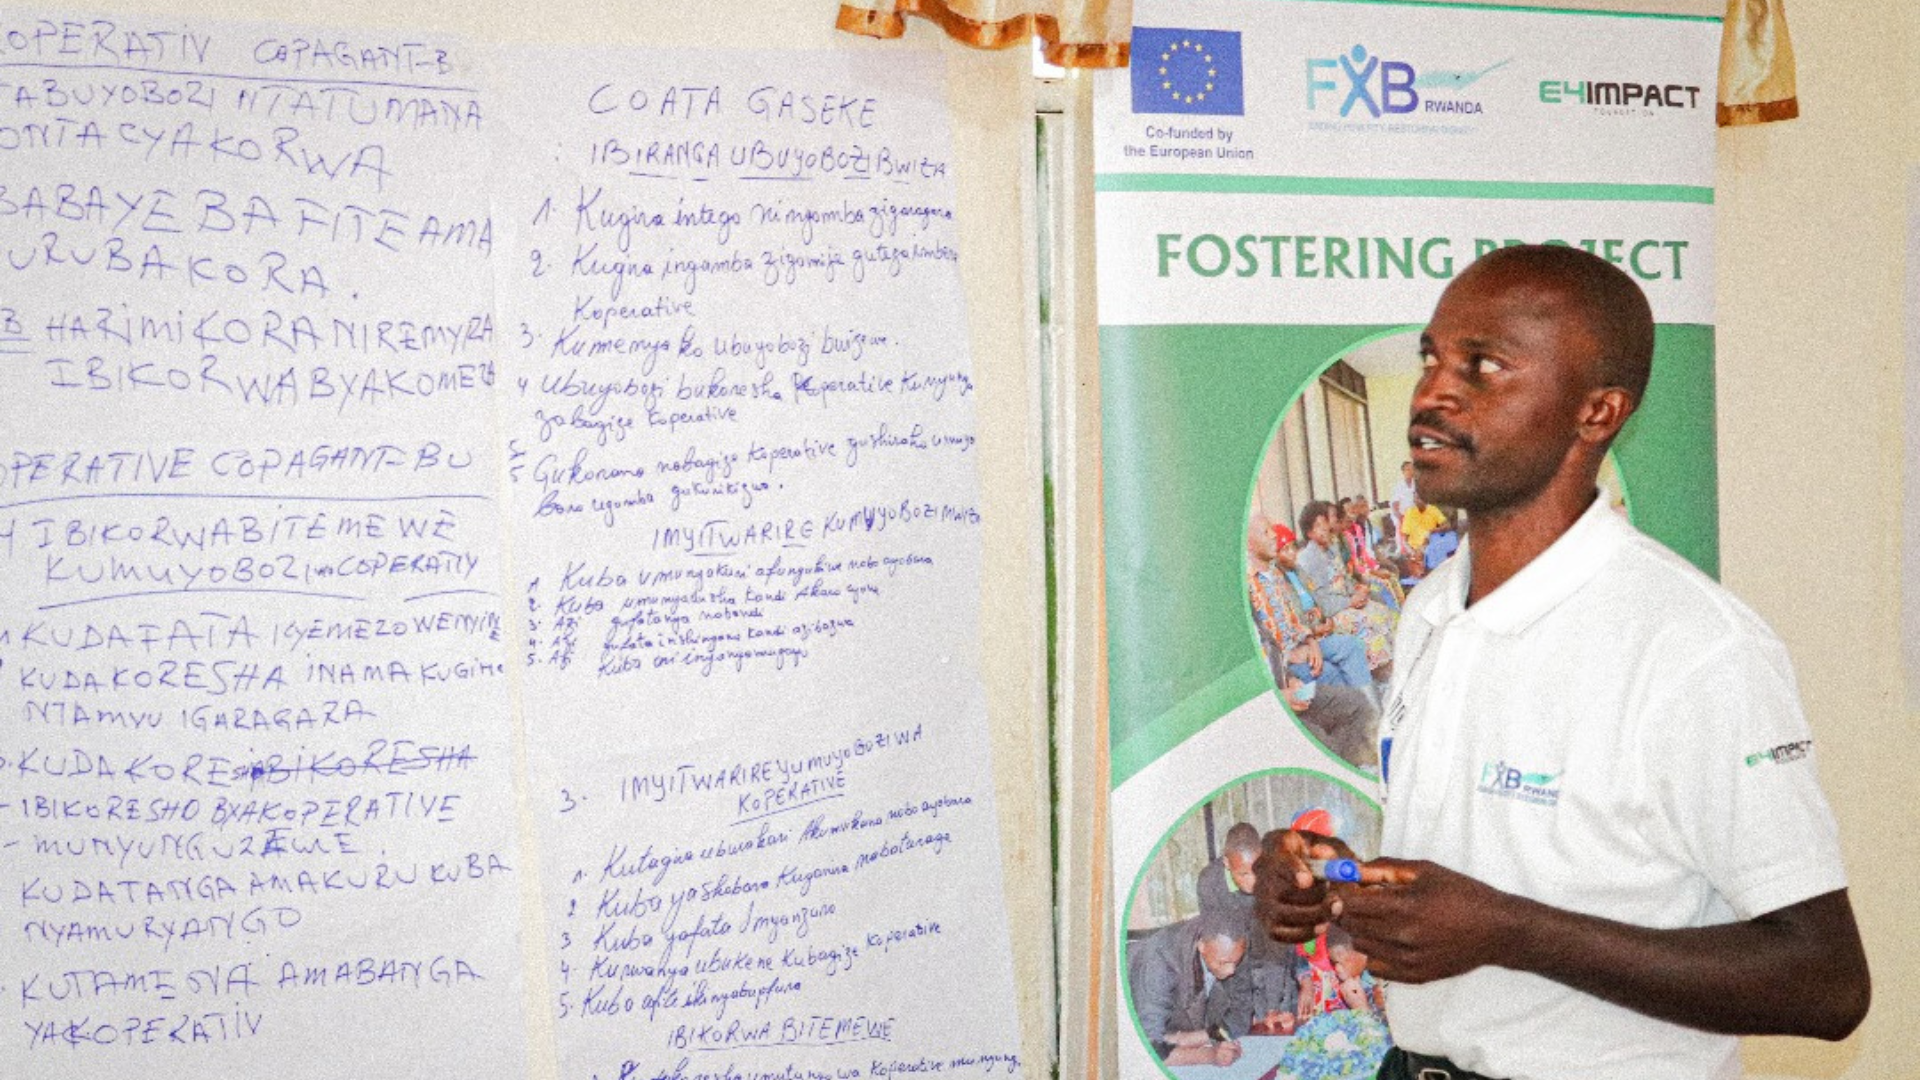 OPERATIV COPAGANT-B
TABUYOBOZI NTATUMANA
ONTACYAKORWA
BABAYE BAFITE AMA
URUBAKORA.
B HARIMIKORANIREMYZA
IBIKORWABYAKOMEZA
OPERATIVE COPAGANT-BU
4 IBIKORWABITEMEWE
KUMUYOBOZI COPERATIV
KUDAFATA ICYEMEZO
KUDAKORESHA INAMA KUGIHE
NTAMVU IGARAGARA
KUDAKORE
- IBIKORESHO BYAKOPERATIVE
- MUNYUNGUZEWE.
KUDATANGA AMAKURU KUBA
NYAMURYANGO
KUTAMENA AMABANGA
YAKOPERATIV
COATA GASEKE
: IBIRANGA UBUYOBOZI BWIZA
1. Kugira intego ningomba zigaragara
2. Kugira ingamba zigamije guteza imbere
Koperative
3. Kumenya ko ubuyobozi
4 Ubuyobozi bukoresha Koperative Kunyungu
zabagize Koperative
5
5 Gukorana nabagize Koperative gushiraho umugo
IMYITWARIRE KUMUYOBOZI MWIZA
1 Kuba umunyakuri
2. Kuba
3. Azi gufatanya nabandi
4. Azi gufata inshingano kandi azibazwa
5. Azi Kuba ari inyangamugayo
3. IMYITWARIRE YUMUYOBOZI WA
KOPERATIVE
1. Kutagira ubwikasi nabo ayobora
2 Kuba yashobora Kuganira
3 Kuba yafata Imyanzuro
4. Kurwanya ubukene Kubagize Koperative
5. Kuba afite ikinyabupfura
IBIKORWA BITEMEWE
Co-funded by
the European Union
FXB RWANDA
E4IMPACT
FOUNDATION
FOSTERING P JECT
FXB RWAND
E4IMPACT